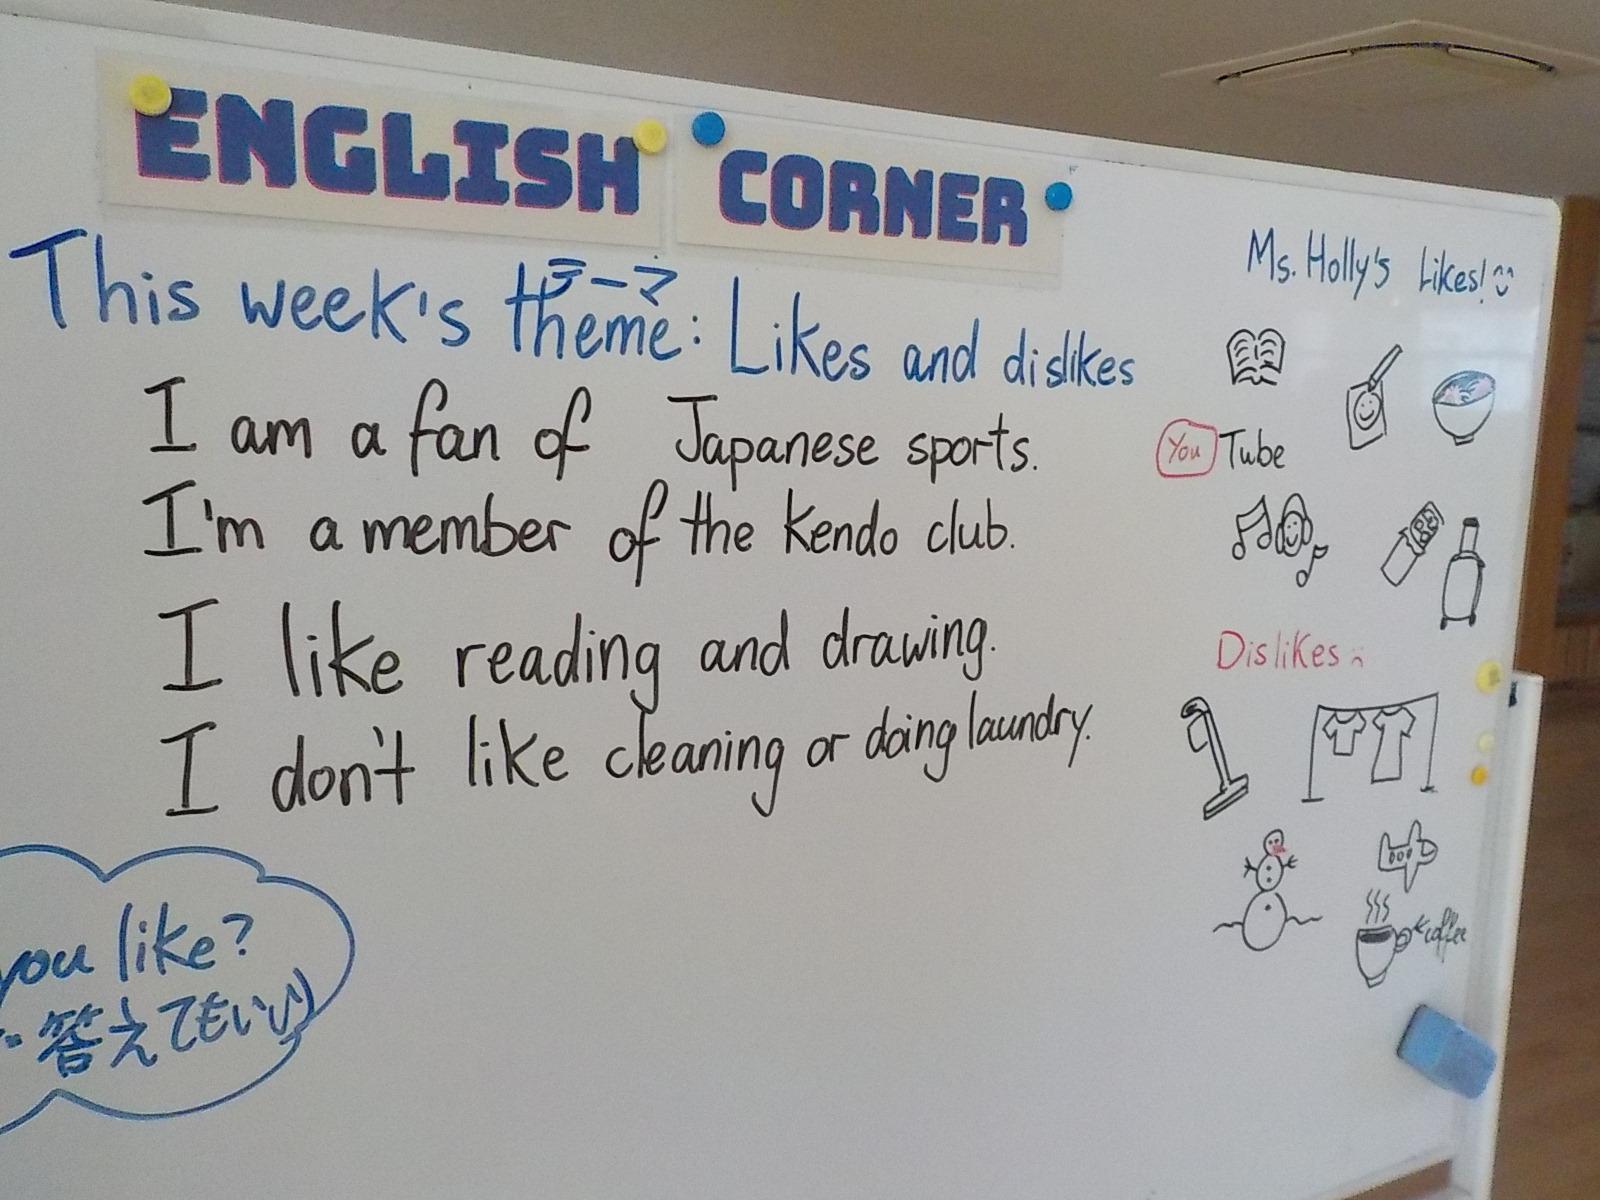 ENGLISH CORNER
テーマ
This week's theme: Likes and dislikes
I am a fan of Japanese sports.
I'm a member of the Kendo club.
I like reading and drawing.
I don't like cleaning or doing laundry.
you like?
答えてもいい)
Ms. Holly's Likes!
You Tube
Dislikes
coffee